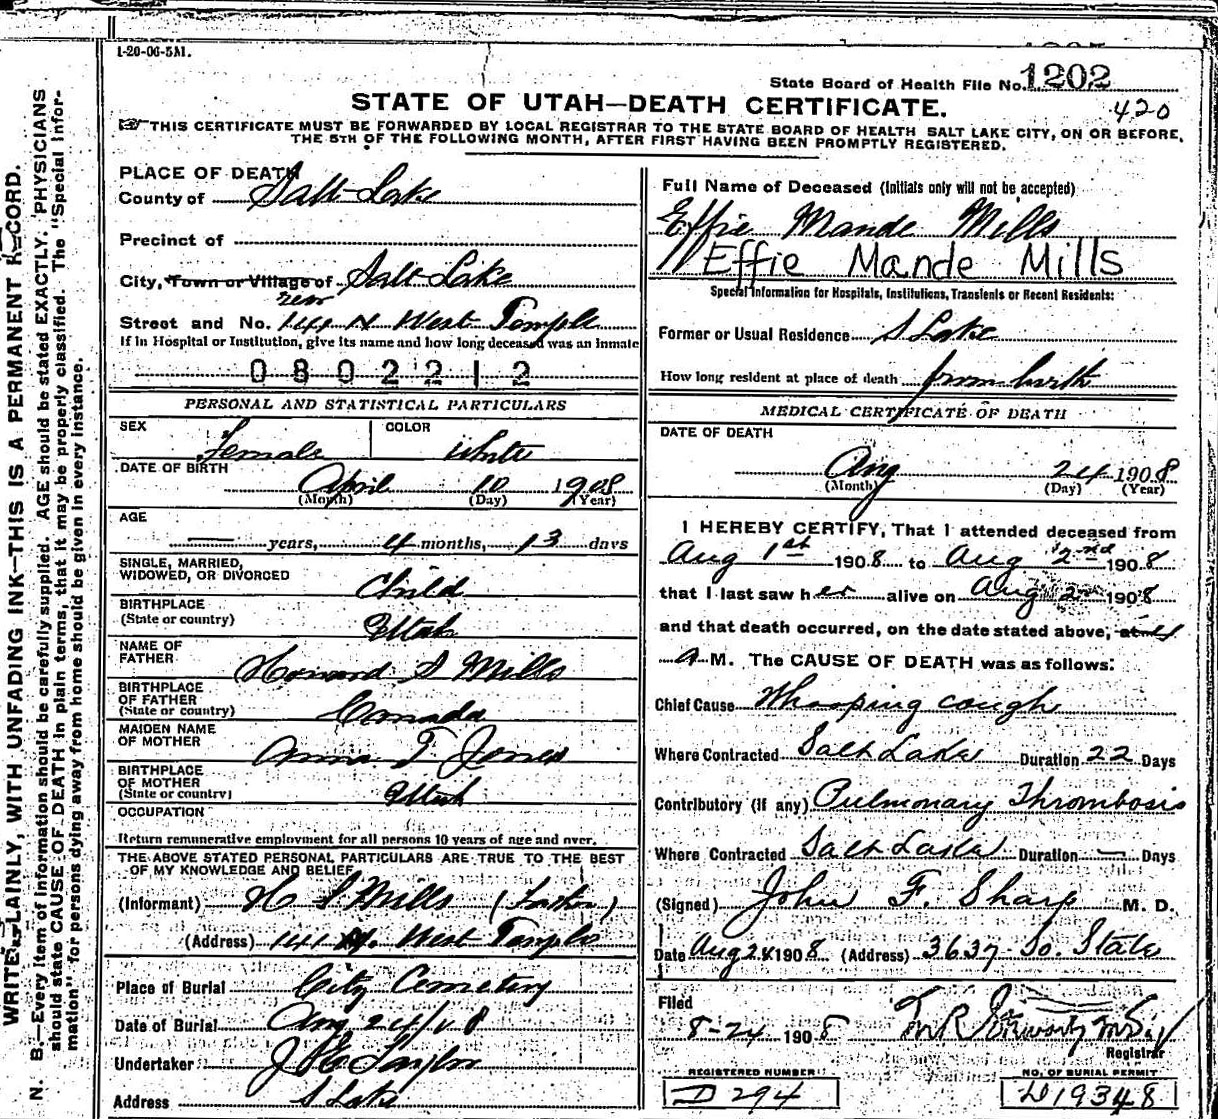 1-20-06-5M.
State Board of Health File No. 1202
420
STATE OF UTAH—DEATH CERTIFICATE.
THIS CERTIFICATE MUST BE FORWARDED BY LOCAL REGISTRAR TO THE STATE BOARD OF HEALTH SALT LAKE CITY, ON OR BEFORE,
THE 5TH OF THE FOLLOWING MONTH, AFTER FIRST HAVING BEEN PROMPTLY REGISTERED.
WRITE PLAINLY, WITH UNFADING INK—THIS IS A PERMANENT RECORD.
N. B.—Every item of information should be carefully supplied. AGE should be stated EXACTLY. PHYSICIANS
should state CAUSE OF DEATH in plain terms, that it may be properly classified. The "Special Infor-
mation" for persons dying away from home should be given in every instance.
PLACE OF DEATH
County of Salt Lake
Precinct of
City, Town or Village of Salt Lake
rear
Street and No. 141 N West Temple
If in Hospital or Institution, give its name and how long deceased was an inmate
0802212
PERSONAL AND STATISTICAL PARTICULARS
SEX Female COLOR White
DATE OF BIRTH
April 10 1908
(Month) (Day) (Year)
AGE
— years, 4 months, 13 days
SINGLE, MARRIED,
WIDOWED, OR DIVORCED Child
BIRTHPLACE
(State or country) Utah
NAME OF
FATHER Howard S Mills
BIRTHPLACE
OF FATHER
(State or country) Canada
MAIDEN NAME
OF MOTHER Anna T. Jones
BIRTHPLACE
OF MOTHER
(State or country) Utah
OCCUPATION
Return remunerative employment for all persons 10 years of age and over.
THE ABOVE STATED PERSONAL PARTICULARS ARE TRUE TO THE BEST
OF MY KNOWLEDGE AND BELIEF
(Informant) H S Mills (Father)
(Address) 141 N. West Temple
Place of Burial City Cemetery
Date of Burial Aug 24/08
Undertaker Taylor
Address S Lake
Full Name of Deceased (Initials only will not be accepted)
Effie Mande Mills
Effie Mande Mills
Special Information for Hospitals, Institutions, Transients or Recent Residents:
Former or Usual Residence S Lake
How long resident at place of death from birth
MEDICAL CERTIFICATE OF DEATH
DATE OF DEATH
Aug 24 1908
(Month) (Day) (Year)
I HEREBY CERTIFY, That I attended deceased from
Aug 1st 1908 to Aug 2nd 1908
that I last saw her alive on Aug 2nd 1908
and that death occurred, on the date stated above, at 4
A M. The CAUSE OF DEATH was as follows:
Chief Cause Whooping cough
Where Contracted Salt Lake Duration 22 Days
Contributory (if any) Pulmonary Thrombosis
Where Contracted Salt Lake Duration — Days
(Signed) John F. Sharp M. D.
Date Aug 24 1908 (Address) 3637 So. State
Filed
8-24 1908
Registrar
REGISTERED NUMBER: D 294
NO. OF BURIAL PERMIT D 19348